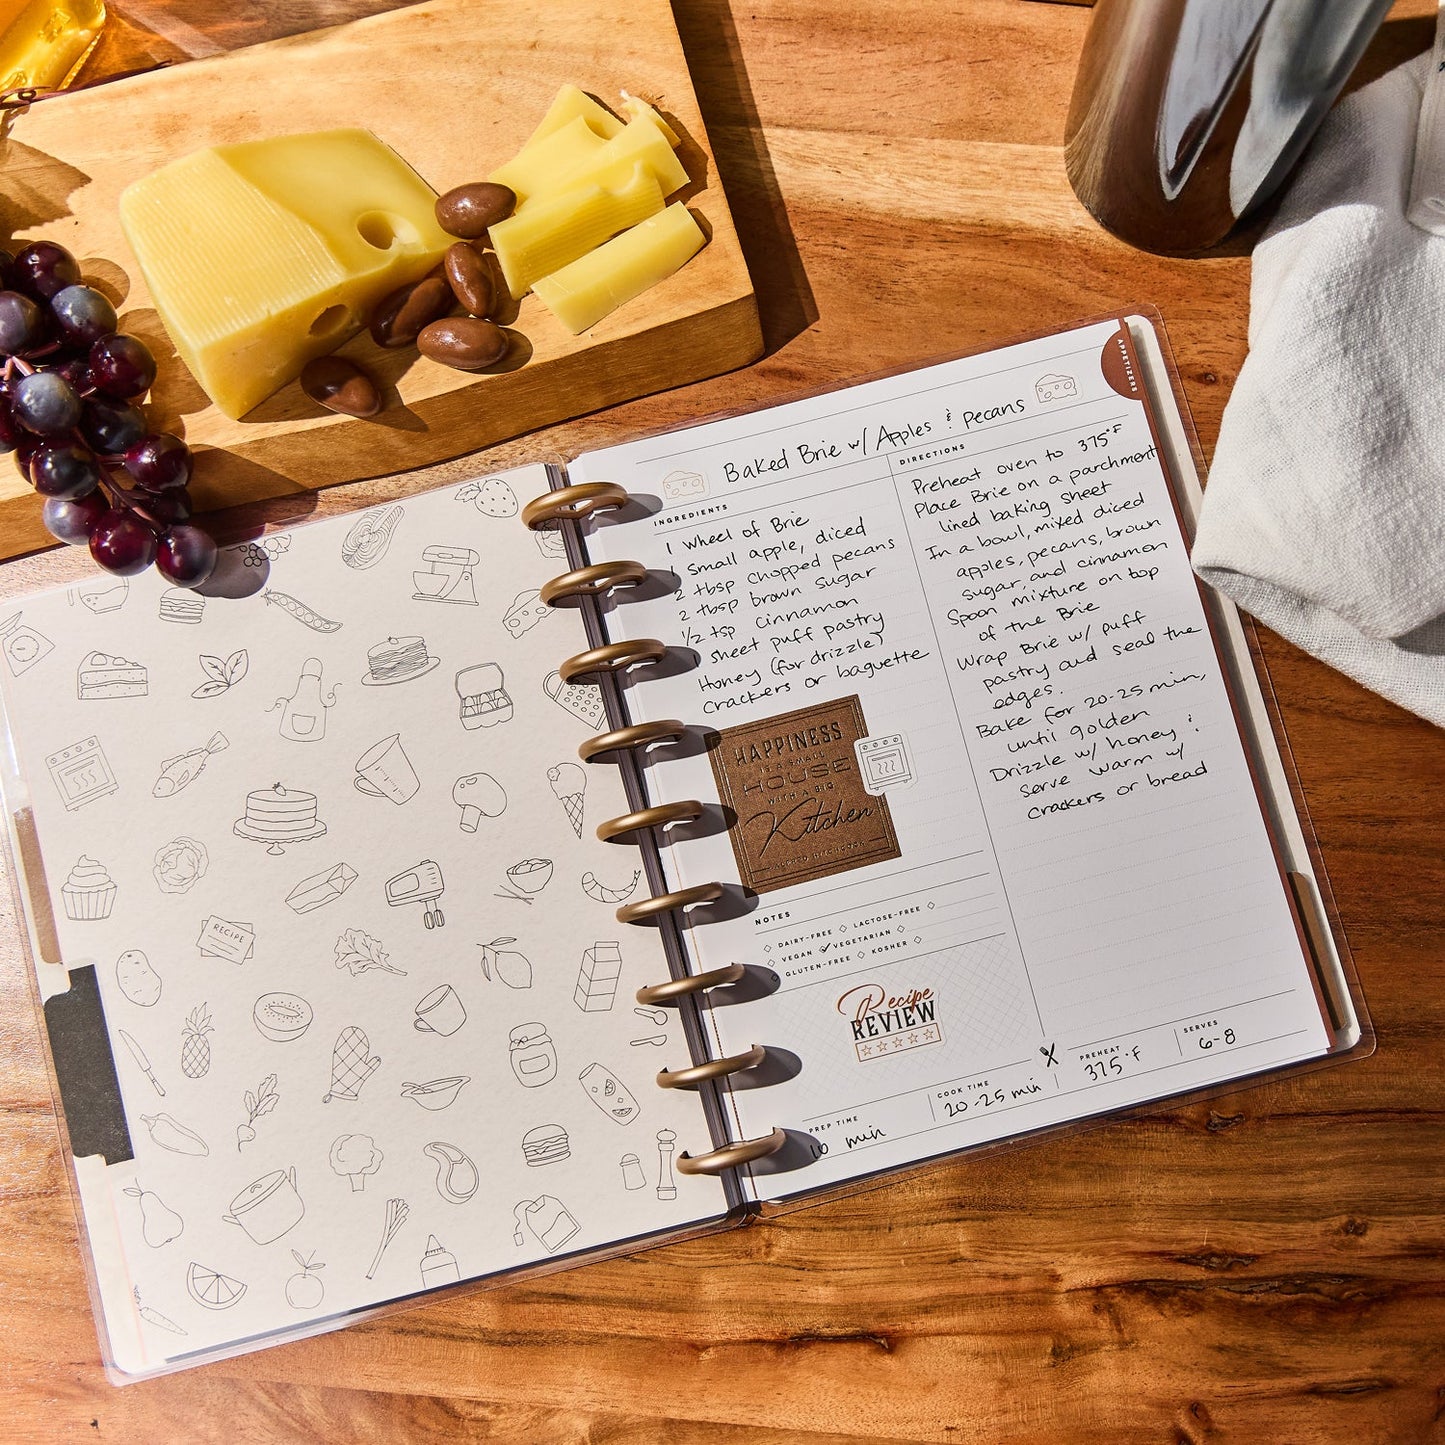 RECIPE
APPETIZERS
Baked Brie w/ Apples & pecans
INGREDIENTS
1 wheel of Brie
1 small apple, diced
2 tbsp chopped pecans
2 tbsp brown sugar
1/2 tsp cinnamon
sheet puff pastry
Honey (for drizzle)
Crackers or baguette
HAPPINESS
IS A SMALL
HOUSE
WITH A BIG
Kitchen
NOTES
DAIRY-FREE
LACTOSE-FREE
VEGAN
VEGETARIAN
GLUTEN-FREE
KOSHER
Recipe
REVIEW
DIRECTIONS
Preheat oven to 375°F
Place Brie on a parchment
lined baking sheet
In a bowl, mixed diced
apples, pecans, brown
sugar, and cinnamon
Spoon mixture on top
of the Brie
Wrap Brie w/ puff
pastry and seal the
edges.
Bake for 20-25 min,
until golden
Drizzle w/ honey &
serve warm w/
crackers or bread
PREP TIME
10 min
COOK TIME
20-25 min
PREHEAT
375°F
SERVES
6-8